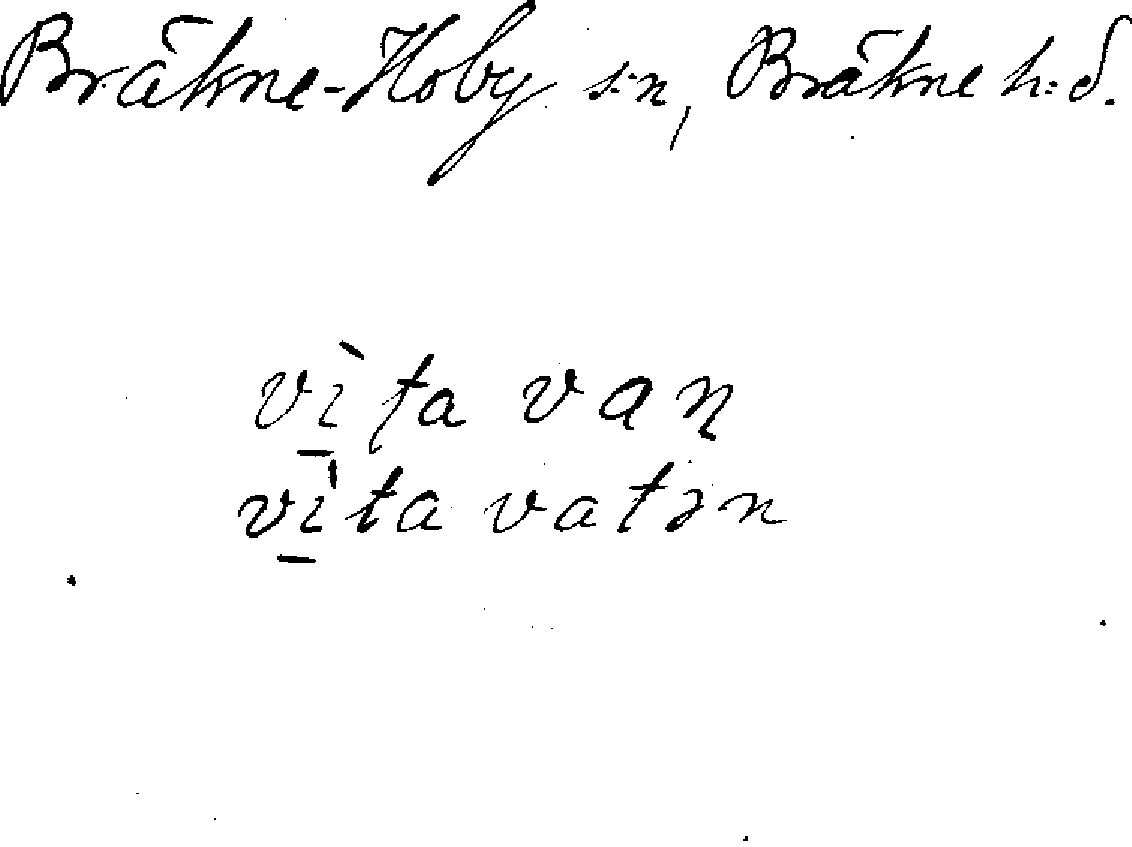 Bräkne-Hoby s:n, Bräkne h:d.
vì̱ta vaɳ
vì̱ta vatən